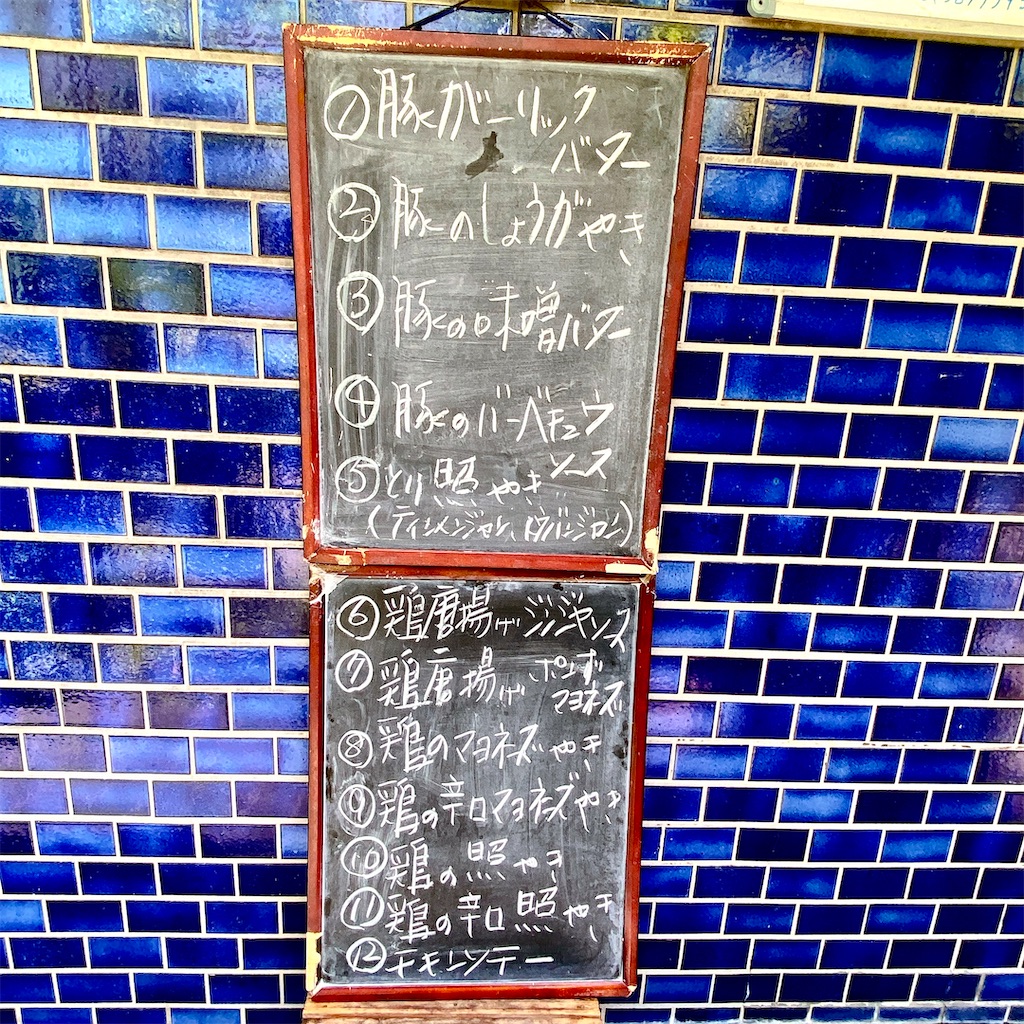 ① 豚ガーリック
バター
② 豚のしょうがやき
③ 豚の味噌バター
④ 豚のバーベキュウ
ソース
⑤ とり照やき
(テインメンジャン、トウバンジャン)
⑥ 鶏唐揚げ ジンジャソース
⑦ 鶏唐揚げ ポンず
マヨネーズ
⑧ 鶏のマヨネーズやき
⑨ 鶏の辛口マヨネーズやき
⑩ 鶏の照やき
⑪ 鶏の辛口照やき
⑫ チキンソテー